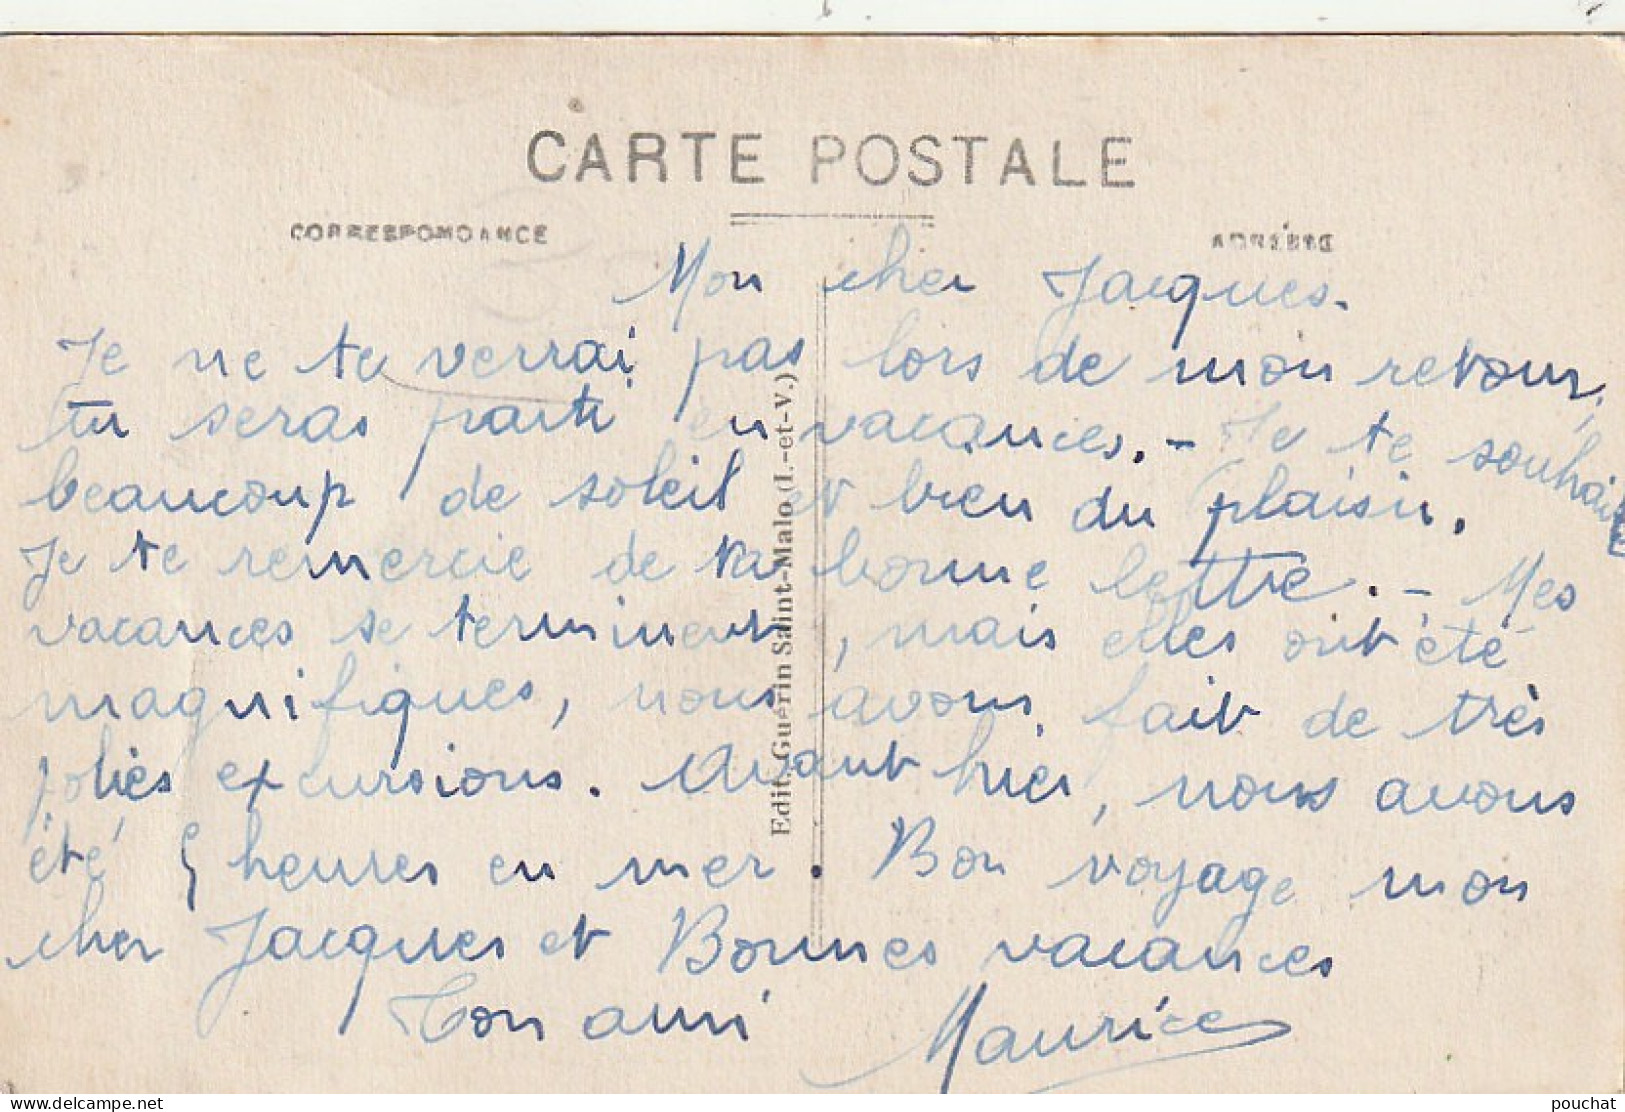 CARTE POSTALE
CORRESPONDANCE
ADRESSE
Mon cher Jacques.
Je ne te verrai pas lors de mon retour,
tu seras parti en vacances. - Je te souhaite
beaucoup de soleil et bien du plaisir.
Je te remercie de ta bonne lettre. - Mes
vacances se terminent, mais elles ont été
magnifiques, nous avons fait de très
jolies excursions. Avant hier, nous avons
été 5 heures en mer. Bon voyage mon
cher Jacques et Bonnes vacances
Ton ami Maurice
Edit. Guérin Saint-Malo (I.-et-V.)
delcampe.net
pouchat